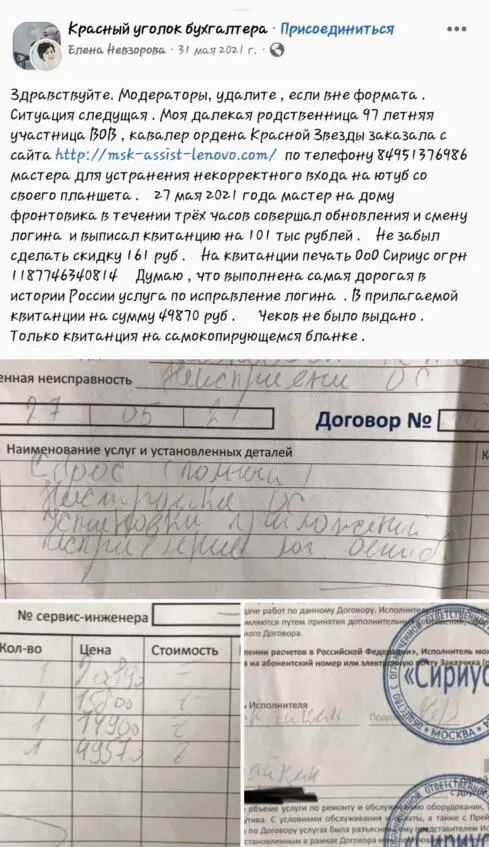 Красный уголок бухгалтера · Присоединиться
Елена Невзорова · 31 мая 2021 г. ·
Здравствуйте. Модераторы, удалите , если вне формата .
Ситуация следущая . Моя далекая родственница 97 летняя
участница ВОВ , кавалер ордена Красной Звезды заказала с
сайта http://msk-assist-lenovo.com/ по телефону 84951376986
мастера для устранения некорректного входа на ютуб со
своего планшета . 27 мая 2021 года мастер на дому
фронтовика в течении трёх часов совершал обновления и смену
логина и выписал квитанцию на 101 тыс рублей . Не забыл
сделать скидку 161 руб . На квитанции печать ООО Сириус огрн
1187746340814 Думаю , что выполнена самая дорогая в
истории России услуга по исправление логина . В прилагаемой
квитанции на сумму 49870 руб . Чеков не было выдано .
Только квитанция на самокопирующемся бланке .
енная неисправность Неисправен ОС
27 05 21 Договор №
Наименование услуг и установленных деталей
Сброс
Настройка ОС
Установки приложений
исправление
№ сервис-инженера
Кол-во Цена Стоимость
1
1 15800
1 14900
1
даче работ по данному Договору. Исполнитель
омляются путем принятия дополнительных
ного Договора.
лении расчетов в Российской Федерации», Исполнитель
на абонентский номер или электронную почту Заказчика
Исполнителя
«Сириус
МОСКВА
С ОГРАНИЧЕННОЙ ОТВЕТСТВЕННОСТЬЮ
объеме услуги по ремонту и обслуживанию оборудования,
С условиями обслуживания и оплаты, а также с
по Договору услуга был разъяснены ему представителем
становленным в рамках Договора